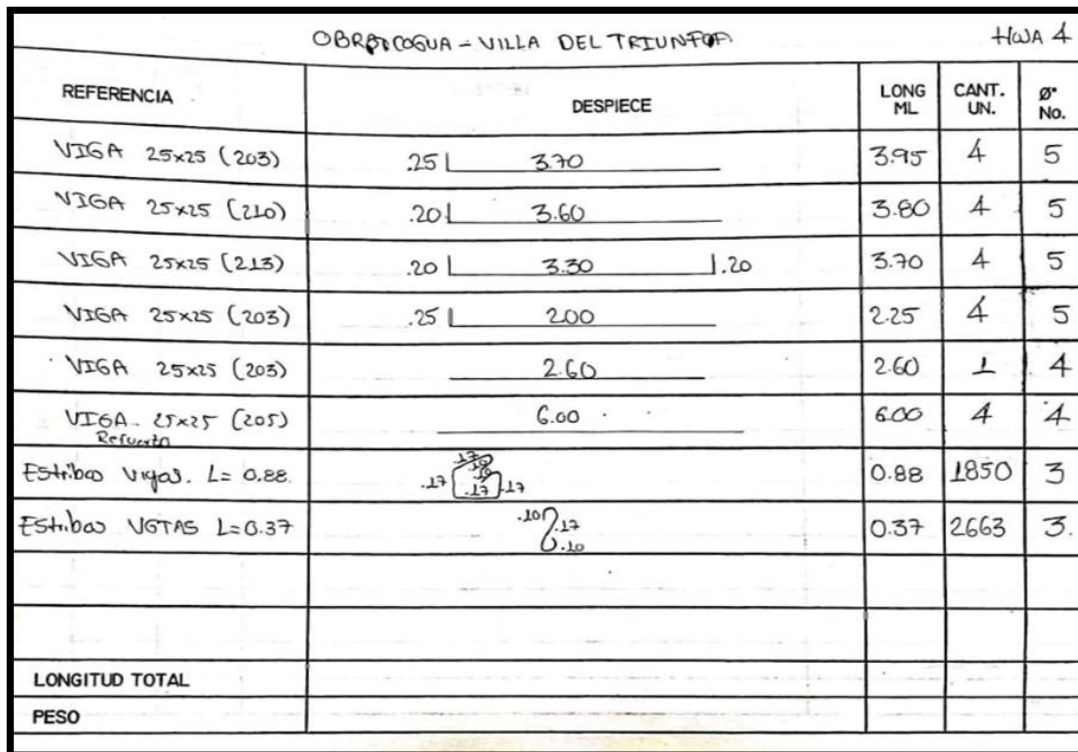 HOJA 4
REFERENCIA DESPIECE LONG ML CANT. UN. Ø" No.
VIGA 25x25 (203) .25 3.70 3.95 4 5
VIGA 25x25 (210) .20 3.60 3.80 4 5
VIGA 25x25 (213) .20 3.30 .20 3.70 4 5
VIGA 25x25 (203) .25 2.00 2.25 4 5
VIGA 25x25 (203) 2.60 2.60 1 4
VIGA - 25x25 (205) 6.00 6.00 4 4
Refuerzo
Estribos Vigas. L= 0.88. .17 .17 .17 .17 0.88 1850 3
Estribos VGTAS L=0.37 .10 .17 .10 0.37 2663 3.
LONGITUD TOTAL
PESO